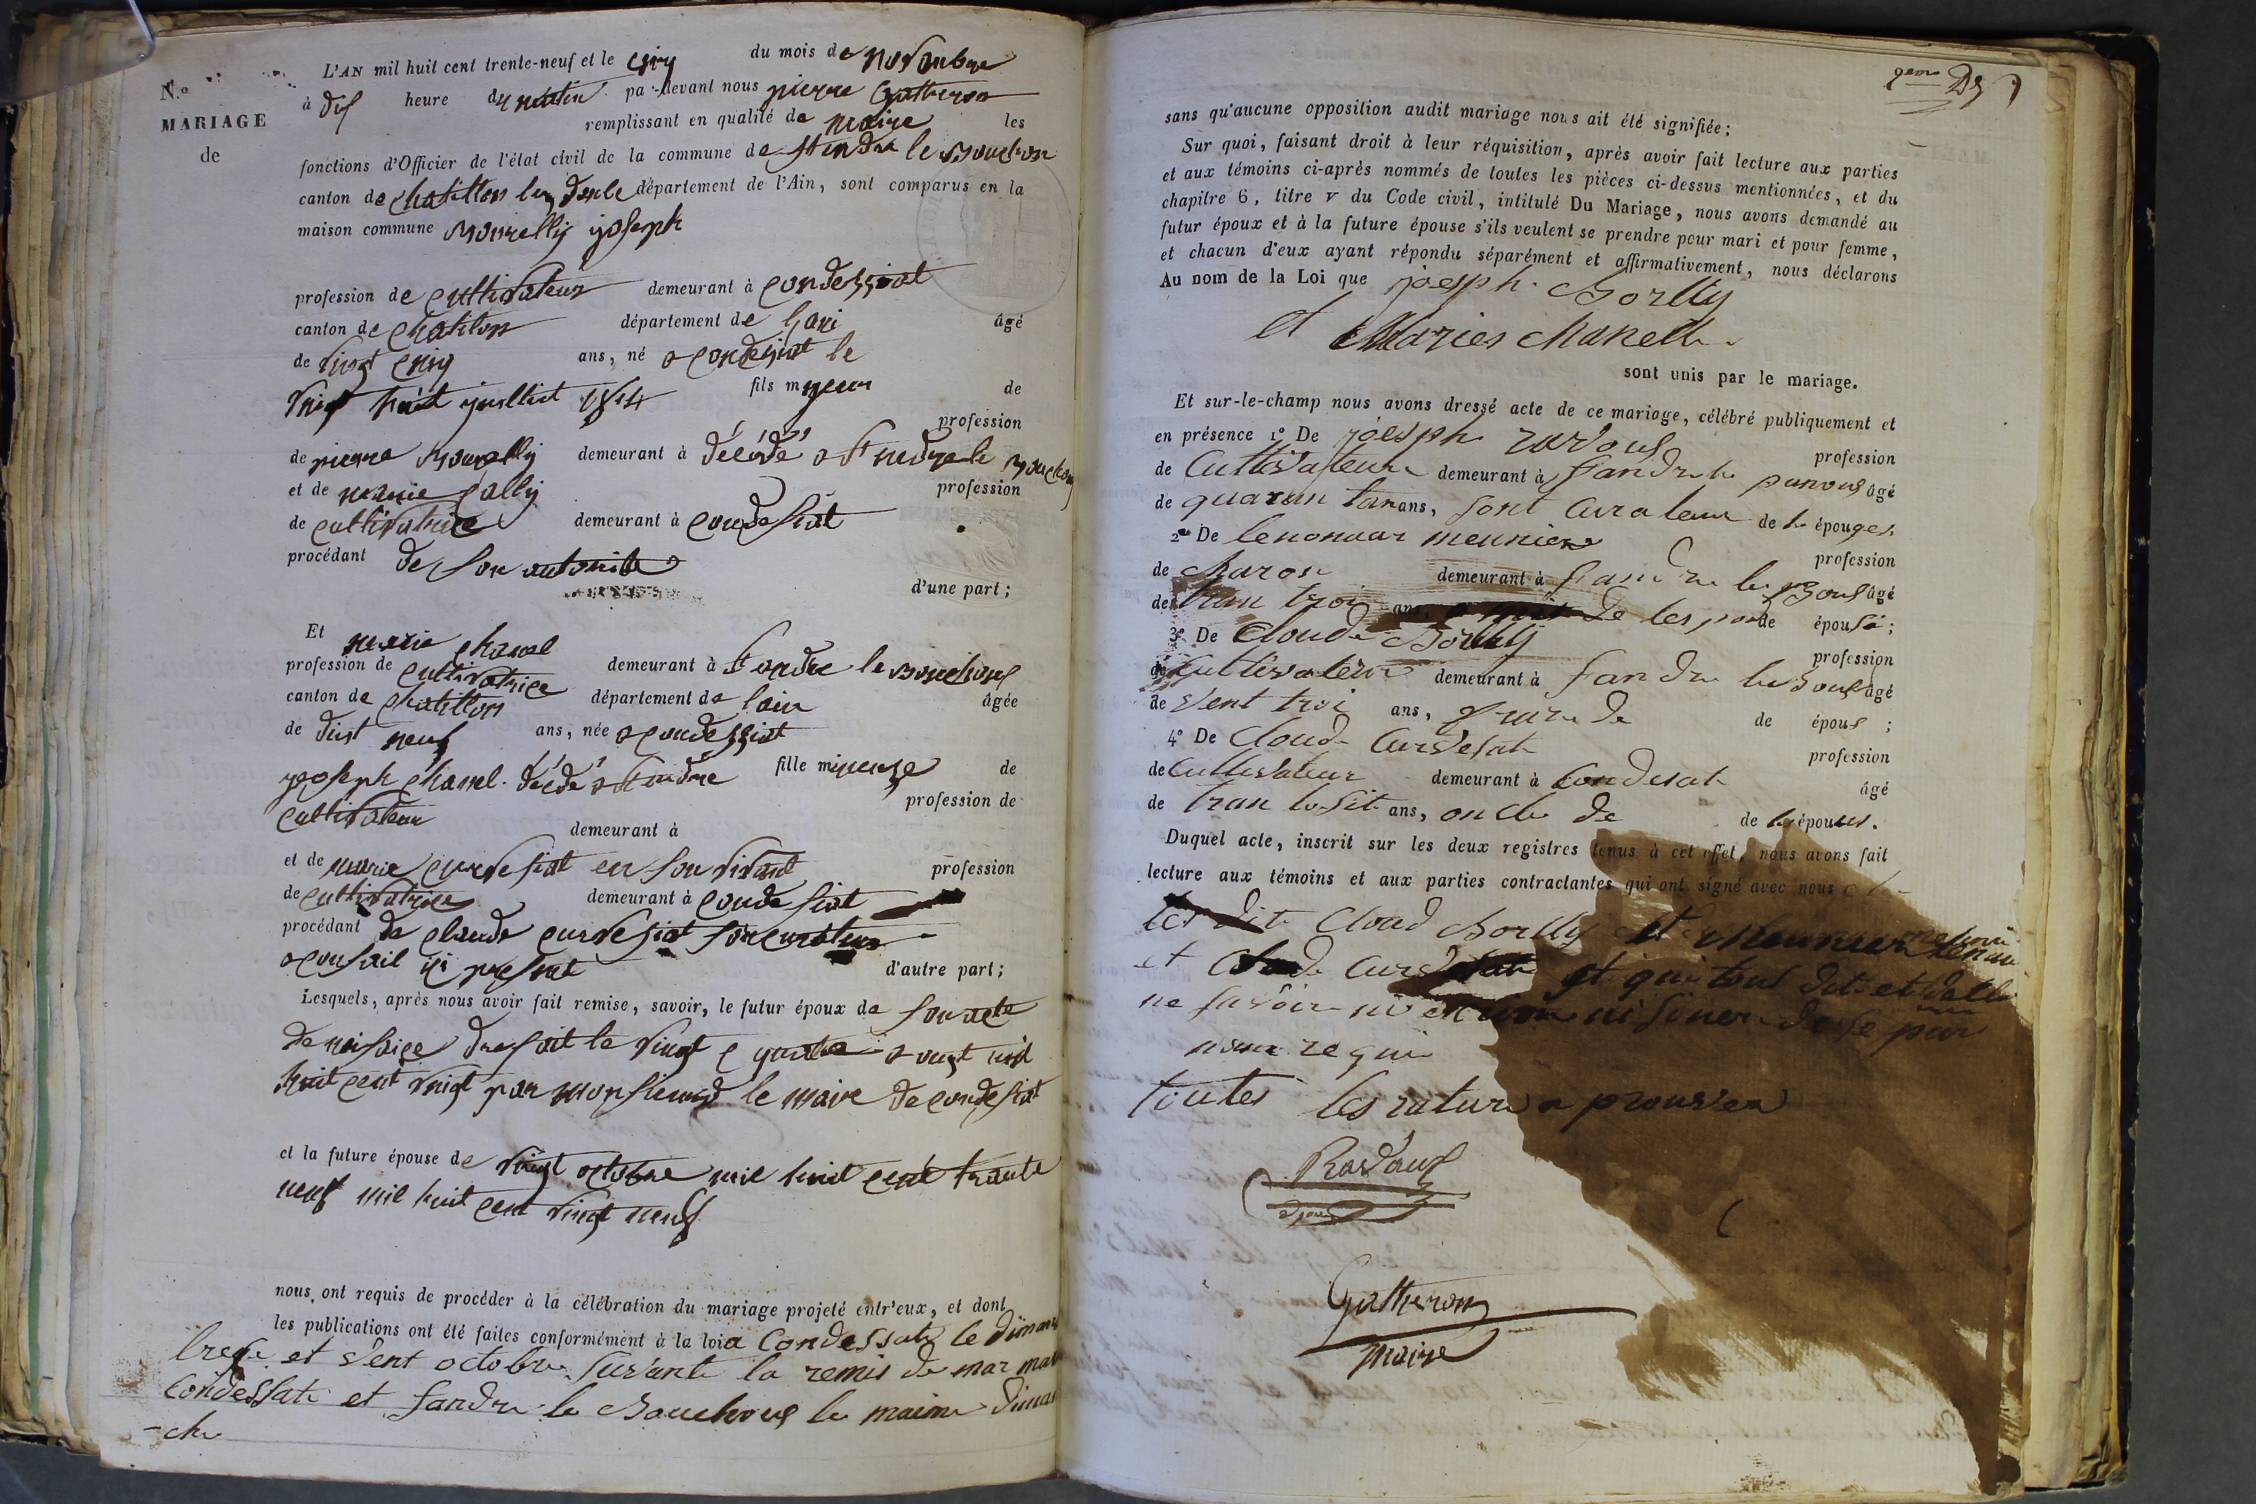 L'AN mil huit cent trente-neuf et le cinq du mois de novembre
N.o
à dix heure du matin par-devant nous pierre Gatheron
MARIAGE
remplissant en qualité de maire les
de
fonctions d'Officier de l'état civil de la commune de St andre le Bouchou
canton de chatillon les dombe département de l'Ain, sont comparus en la
maison commune joseph
profession de cultivateur demeurant à condessiat
canton de chatillon département de
âgé
de vingt cinq ans, né a condessiat le
vingt huit juilliet 1814 fils majeur de
profession
de pierre demeurant à décédé a St andre le Bouchou
et de marie
profession
de cultivatrice demeurant à condesiat
procédant de son autorite
d'une part;
Et marie chanel
profession de cultivatrice demeurant à St andre le Bouchoux
canton de chatillon département de lain âgée
de dist neuf ans, née a condessiat
joseph chanel décédé a St andre fille mineure de
cultivateur profession de
demeurant à
et de marie curvesiat en son vivant profession
de cultivatrice demeurant à condesiat
procédant de claude curvesiat son curateur
a conseil ici present d'autre part;
Lesquels, après nous avoir fait remise, savoir, le futur époux de son acte
de naissance dresait le vingt quatre august mil
huit cent vingt par monsieur le maire de condesiat
et la future épouse de vingt octobre mil huit cent trante
neuf mil huit cent vingt neuf
nous ont requis de procéder à la célébration du mariage projeté entr'eux, et dont
les publications ont été faites conformément à la loi a Condessate le diman
et vent octobre survante la remis de mar
Condessate et Sandre le Bouchoux le maime diman
-che
sans qu'aucune opposition audit mariage nous ait été signifiée;
Sur quoi, faisant droit à leur réquisition, après avoir fait lecture aux parties
et aux témoins ci-après nommés de toutes les pièces ci-dessus mentionnées, et du
chapitre 6, titre V du Code civil, intitulé Du Mariage, nous avons demandé au
futur époux et à la future épouse s'ils veulent se prendre pour mari et pour femme,
et chacun d'eux ayant répondu séparément et affirmativement, nous déclarons
Au nom de la Loi que joesph Borlly
et Maries chanelle
sont unis par le mariage.
Et sur-le-champ nous avons dressé acte de ce mariage, célébré publiquement et
en présence 1.o De joesph ravous
profession
de Cultivateur demeurant à Sandre le panous âgé
de quaran tan ans, sont Curateur de le épouges.
2.o De lenonnar meunier
profession
de charon demeurant à Sandre le Bous âgé
de tran troi ans de les pou de épousé;
3.o De Cloude Borlly
profession
de Cultivateur demeurant à Sandre le Bous âgé
de vent troi ans, frare de de épous;
4.o De Cloude Curvesate
profession
de Cultivateur demeurant à Condesate
âgé
de tran te sit ans, oncle de de les épouses.
Duquel acte, inscrit sur les deux registres tenus à cet effet, nous avons fait
lecture aux témoins et aux parties contractantes qui ont signé avec nous
les dite Cloud Borlly et Meunier
et Clode Curvesate et qui tous dit et
ne savoir ni ecrire ni siner de se
nous requi
toutes les rature a prouvea
Ravoux
Gatheron
maire